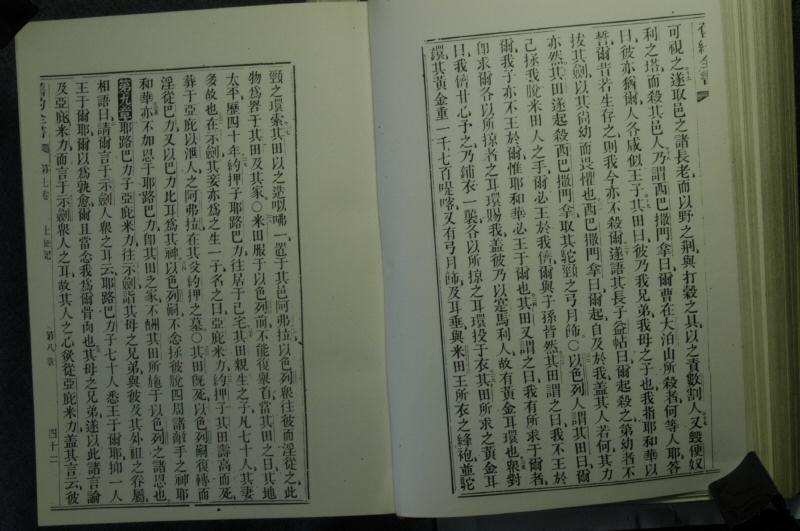 可視之遂取邑之諸長老而以野之荊與打穀之具以之責數割人又毀便奴
利之塔而殺其邑人乃謂西巴撒門拿曰爾曹在大泊山所殺者何等人耶答
曰彼亦猶爾人各咸似王子其田曰彼乃我兄弟我母之子也我指耶和華以
誓爾昔若生存之則我今亦不殺爾遂語其長子益帖曰爾起殺之第幼者不
拔其劍以其尚幼而畏懼也西巴撒門拿曰爾起自及於我蓋其人若何其力
亦然其田遂起殺西巴撒門拿取其駝頸之弓月飾○以色列人謂其田曰爾
己拯我脫米田人之手爾必王於我儕爾與子孫皆然其田謂之曰我不王於
爾我子亦不王於爾惟耶和華必王于爾也其田又謂之曰我有所求于爾者
卽求爾各以所掠者之耳環賜我蓋彼乃以寔馬利人故有黃金耳環也衆對
曰我儕甘心予之乃鋪衣一襲各以所掠之耳環投于衣其田所求之黃金耳
環其黃金重一千七百
又有弓月飾及耳垂與米田王所衣之絳袍並駝
頸之環索其田以之造
一置于其邑阿弗拉以色列衆往彼而淫從之此
物爲咎于其田及其家○米田服于以色列前不能復舉首當其田之日其地
太平歷四十年約押子耶路巴力往居于己宅其田親生之子凡七十人其妻
多故也在示劍其妾亦爲之生一子名之曰亞庇米力約押子其田壽高而死
葬于亞庇以洩人之阿弗拉在其父約押之墓○其田旣死以色列嗣復轉而
淫從巴力又以巴力此耳爲其神以色列嗣不念拯彼脫四周諸敵手之神耶
和華亦不加恩于耶路巴力卽其田之家不酬其田所施于以色列之諸恩也
第九章耶路巴力子亞庇米力往示劍詣其母之兄弟與彼及其外祖之眷屬
相語曰請爾言于示劍人衆之耳云耶路巴力子七十人悉王于爾耶抑一人
王于爾耶爾以爲孰愈爾且當念我爲爾骨肉也其母之兄弟遂以此諸言論
及亞庇米力而言于示劍衆人之耳故其人之心欲從亞庇米力蓋其言云彼
第七卷 士師記 第八章 四十二